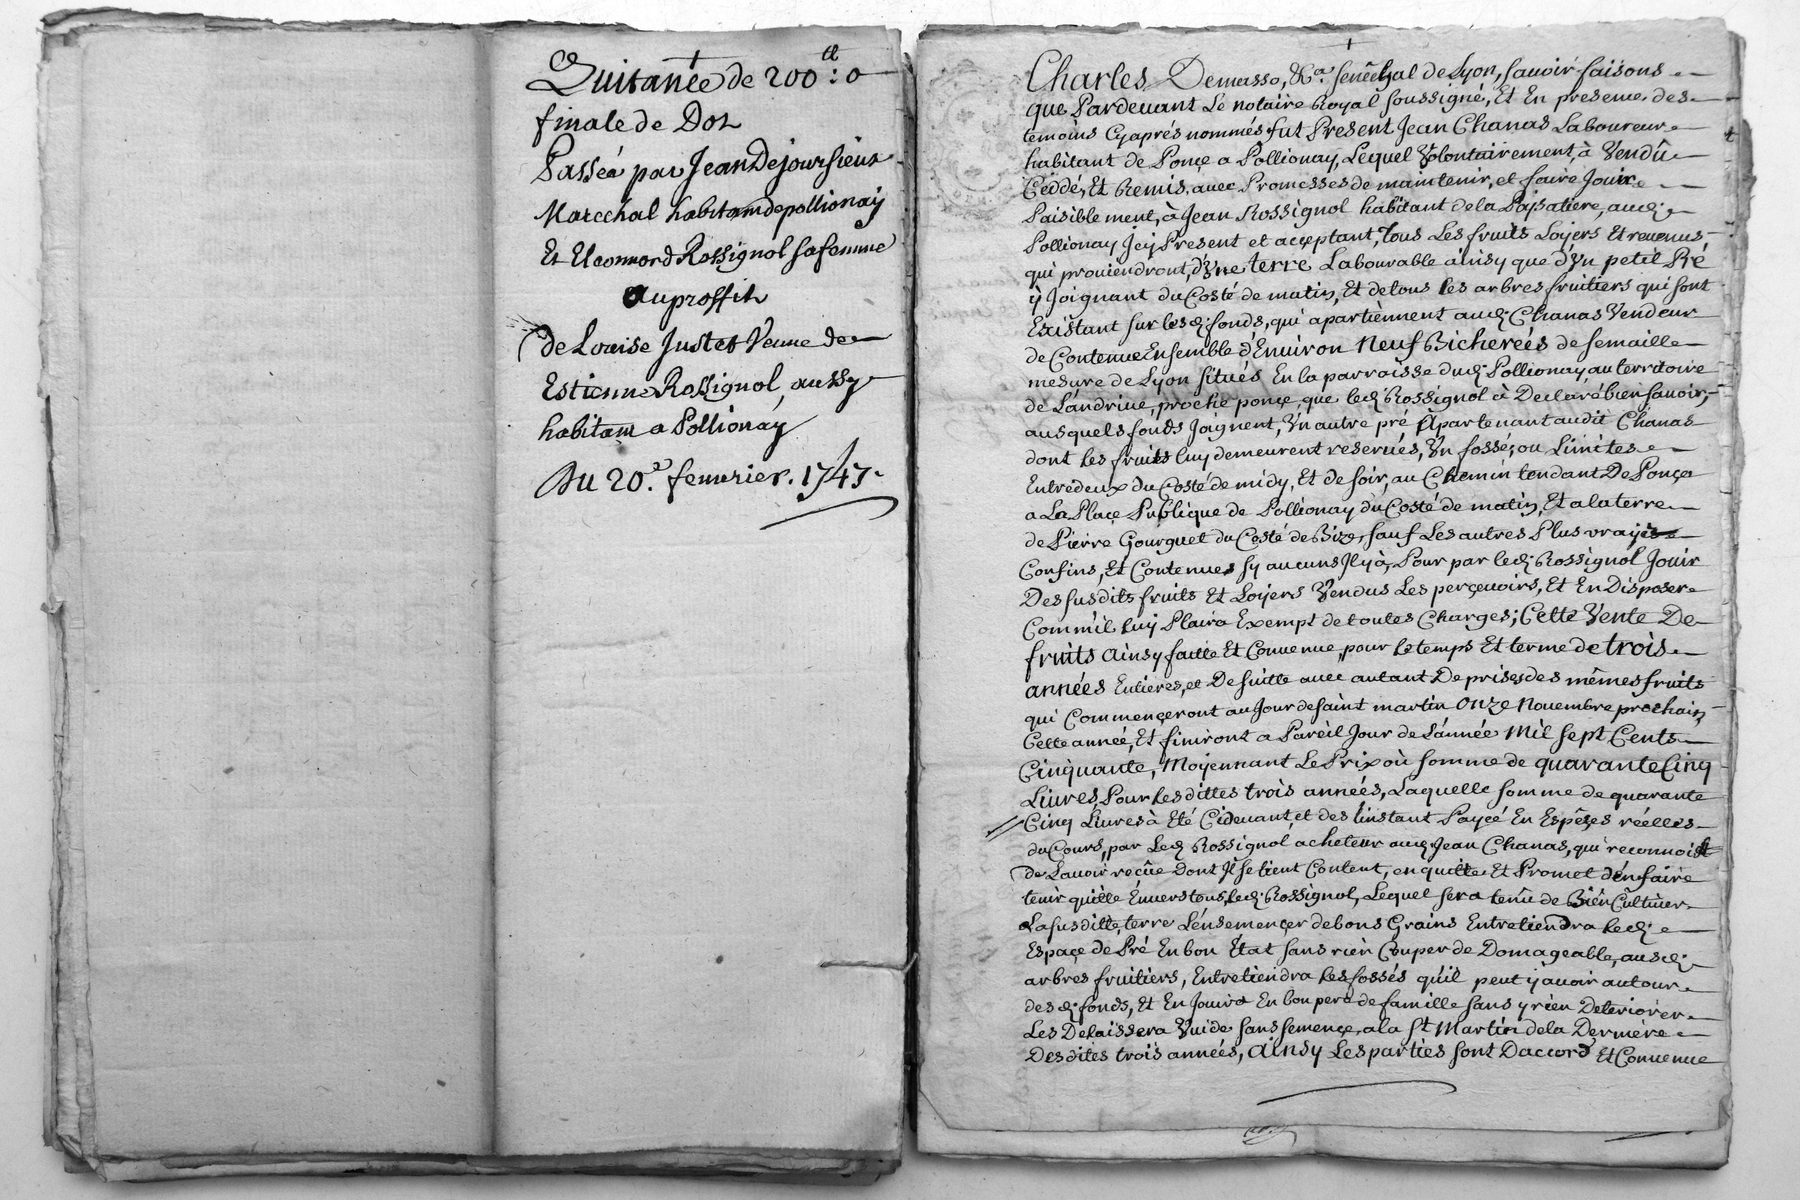 Quitance de 200 tt : 0
finale de Dot
Passéa par Jean Dejoursieux
Marechal habitam de pollionay
Et Eleonnord Rossignol sa femme
Au proffit
de Louise Juste Veuue de
Estienne Rossignol, aussy
habitam a Pollionay
Du 20.e feuurier. 1747.
Charles Demasso, &a. senêchal de Lyon, sauoir faisons
que Pardeuant Le notaire Royal soussigné, Et En presence des
temoins Cyaprés nommés fut Present Jean Chanas Laboureur
habitant de Ponçe a Pollionay, Lequel Volontairement, à Vendû
Ceddé, Et Remis, auec Promesses de maintenir, et faire Jouir
Paisiblement, à Jean Rossignol habitant de la Paysatiere, aud.
Pollionay Jcy Present et acçeptant, tous Les fruits Loyers Et reuenus
qui prouiendront, d'Vne terre Labourable ainsy que d'Vn petit Pré
ÿ Joignant du Costé de matin, Et de tous les arbres fruitiers qui sont
Existant sur lesd. fonds, qui apartiennent aud. Chanas Vendeur
de Contenue Ensemble d'Enuiron Neuf Bicherées de semaille
mesure de Lyon situés En la parroisse dud. Pollionay, au territoire
de Landriue, proche ponçe, que led. Rossignol à Declaré bien sauoir,
ausquels fonds Joignent, Vn autre pré Apartenant audit Chanas
dont les fruits luy demeurent reserués, Vn fossé, ou Limites
Entredeux du Costé de midy, Et de soir, au Chemin tendant De Ponçe
a La Plaçe Publique de Pollionay du Costé de matin, Et a la terre
de Pierre Gourguet du Costé de Bize, sauf Les autres Plus vrayes
Confins, Et Contenues sy aucuns Jl y à, Pour par led. Rossignol Jouir
Des susdits fruits Et Loyers Vendus Les perçeuoirs, Et En Disposer
Comm'il luy Plaira Exempt de toutes Charges; Cette Vente De
fruits Ainsy faitte Et Conuenue, pour le temps Et terme de trois
années Entieres, et De suitte auec autant De prises des mêmes fruits
qui Commençeront au Jour de saint martin Onze Nouembre prochain
Cette année, Et finiront a Pareil Jour de L'année Mil sept Cents
Cinquante, Moyennant Le Prix où somme de quarante Cinq
Liures, Pour les dittes trois années, Laquelle somme de quarante
Cinq Liures à Eté Cideuant, et des l'instant Payée En Espêçes réelles
du Cours, par Led. Rossignol acheteur aud. Jean Chanas, qui reconnoist
de Lauoir reçûe dont Jl se tient Content, en quitte Et Promet d'en faire
tenir quitte Enuers tous, led. Rossignol, Lequel sera tenû de Bien Cûltiuer
La susditte, terre L'ensemençer de bons Grains Entretiendra led.
Espaçe de Pré En bon Etat sans rien Couper de Domageable, ausd.
arbres fruitiers, Entretiendra les fossés qu'il peut y auoir autour
desd. fonds, Et En Jouira En bon pere de famille sans y rien Deteriorer
Les Delaissera Vuide sans semençe, a la St. Martin de la Derniere
Desdites trois années, Ainsy Les parties sont Daccord Et Conuenue